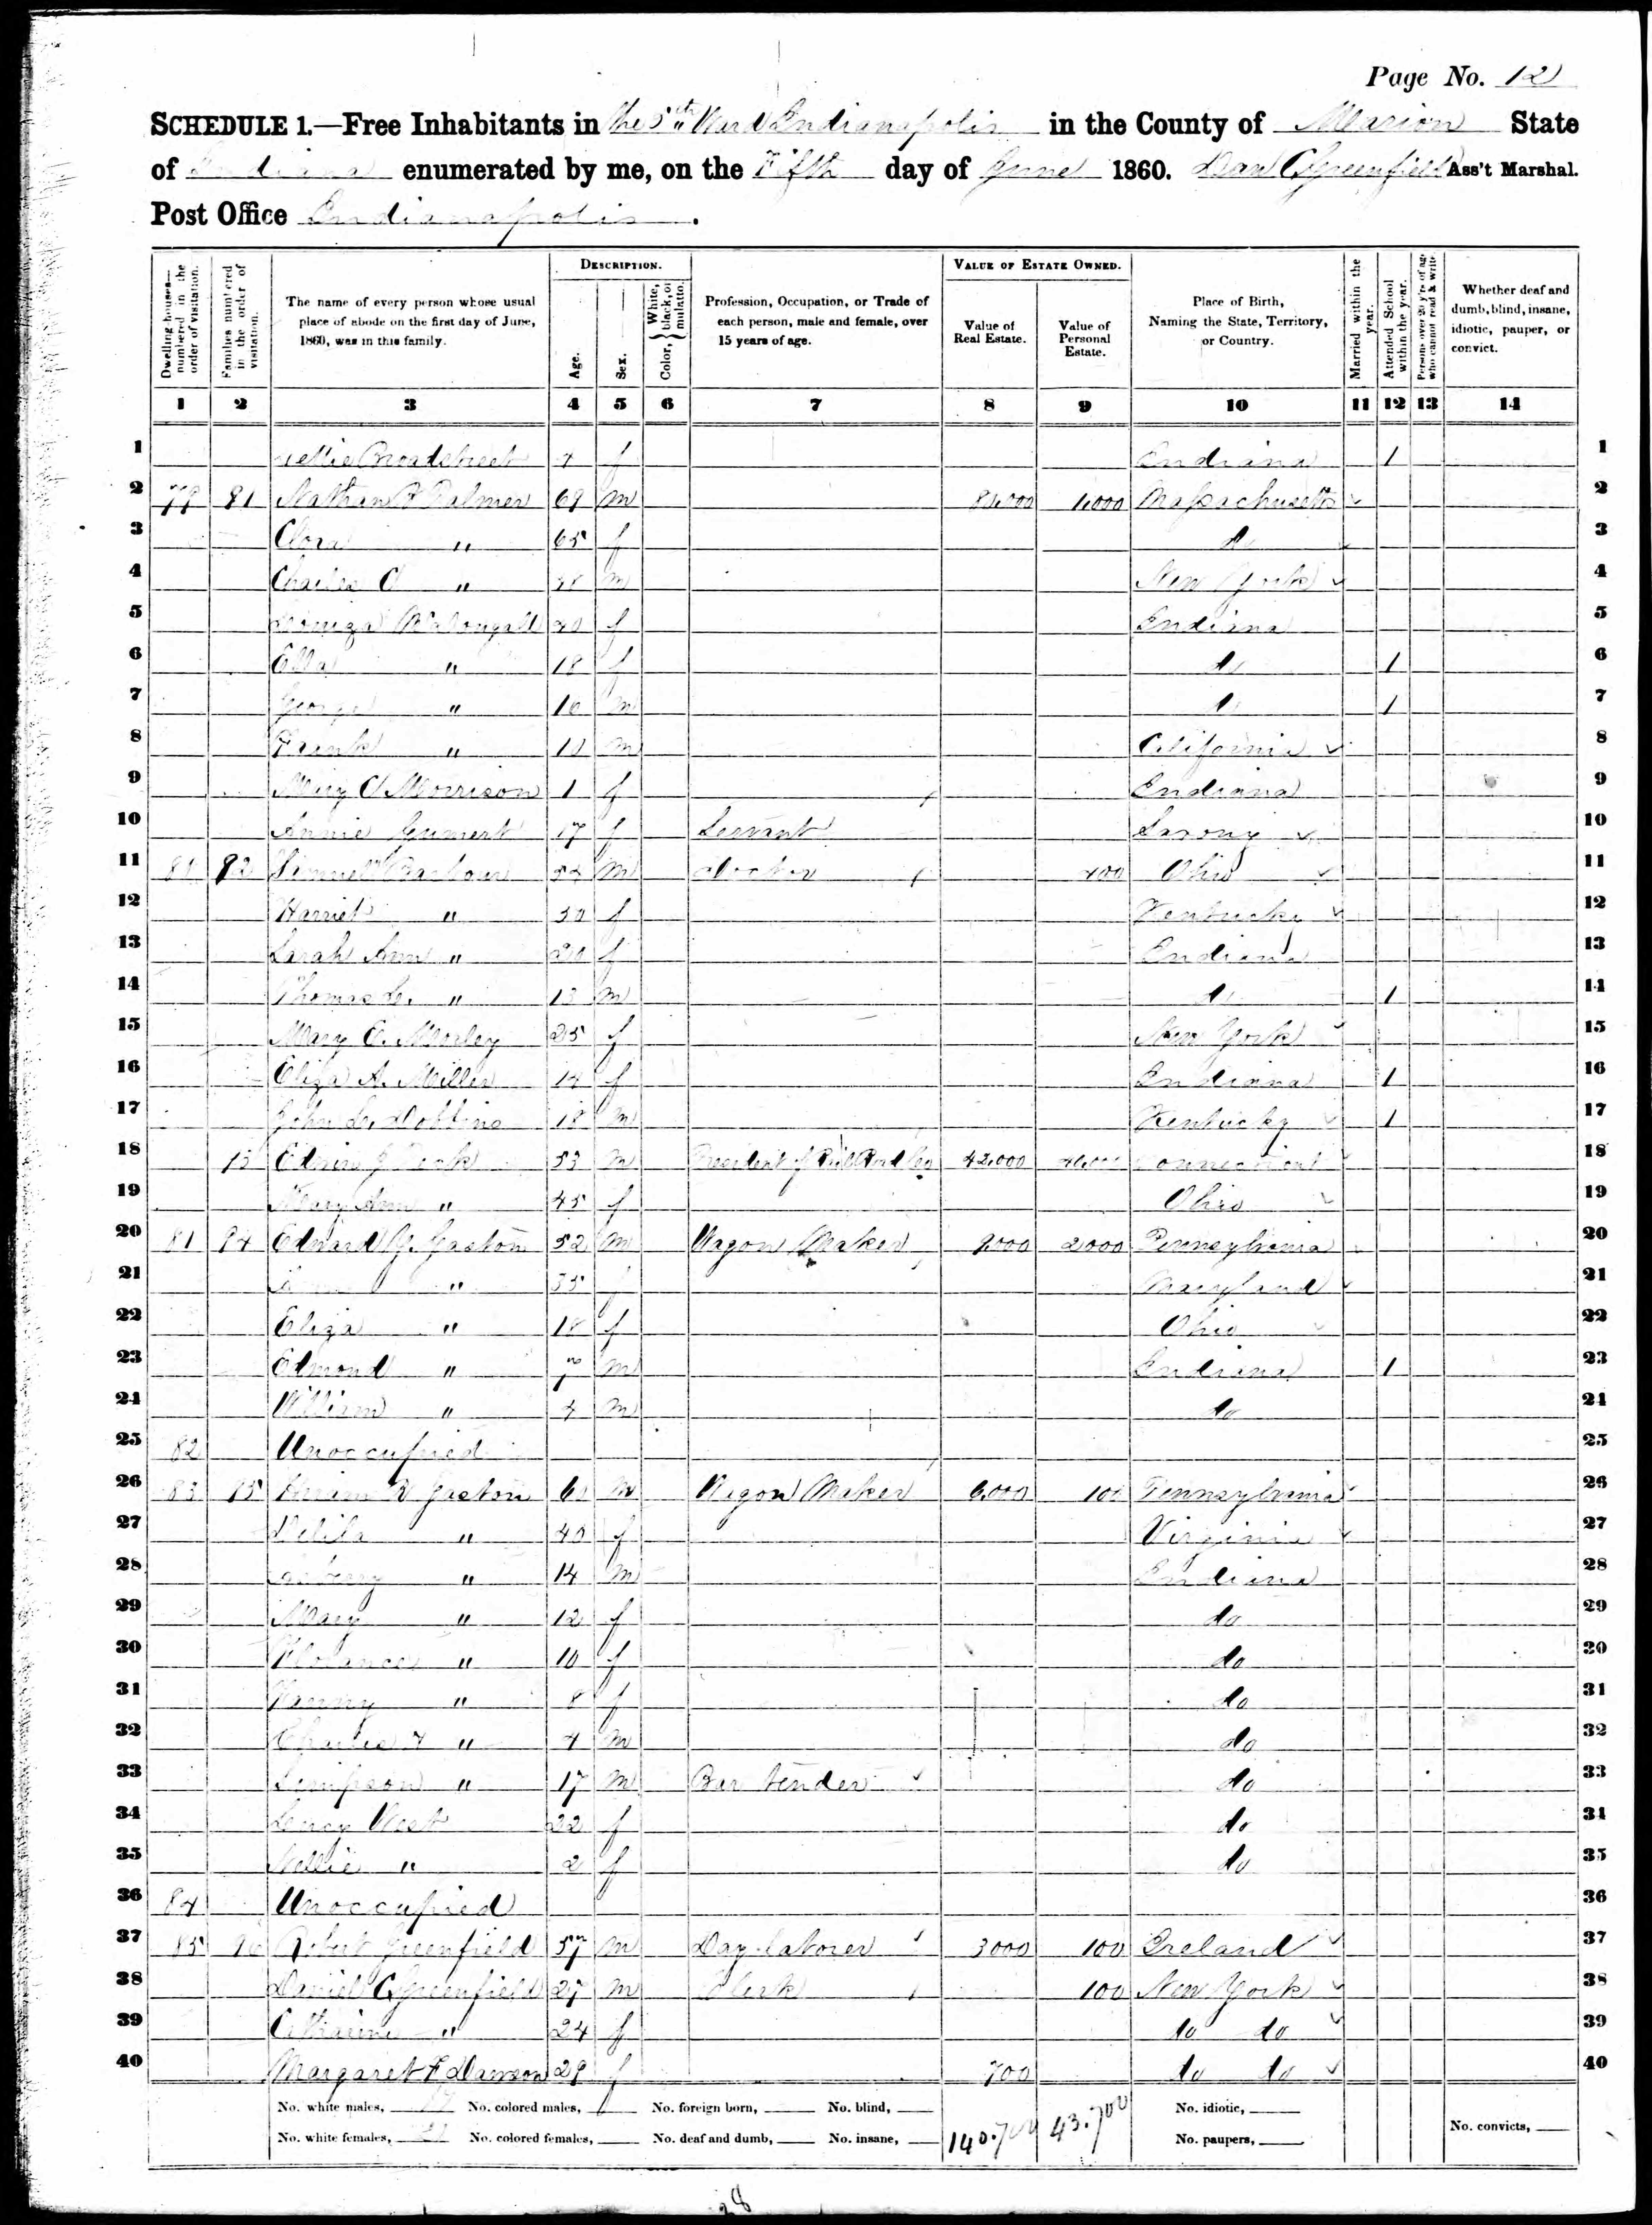 Page No. 12
SCHEDULE 1.—Free Inhabitants in the 5th Ward Indianapolis in the County of Marion State
of Indiana enumerated by me, on the Fifth day of June 1860. Dan C Greenfield Ass't Marshal.
Post Office Indianapolis.
Dwelling-houses—numbered in the order of visitation. Families numbered in the order of visitation. The name of every person whose usual place of abode on the first day of June, 1860, was in this family. DESCRIPTION. Age. Sex. Color, White, black, or mulatto. Profession, Occupation, or Trade of each person, male and female, over 15 years of age. VALUE OF ESTATE OWNED. Value of Real Estate. Value of Personal Estate. Place of Birth, Naming the State, Territory, or Country. Married within the year. Attended School within the year. Persons over 20 y'rs of age who cannot read & write. Whether deaf and dumb, blind, insane, idiotic, pauper, or convict.
1 2 3 4 5 6 7 8 9 10 11 12 13 14
1 Nellie Broadstreet f Indiana 1 1
2 79 91 Nathan B Palmer 69 m 1,000 Massachusetts 2
3 Clora " 65 f do 3
4 Charles C " m New York 4
5 McDougall f Indiana 5
6 Ella " 18 f do 1 6
7 George " 16 m do 1 7
8 Frank " 10 m California 8
9 Mary C Morrison 1 f Indiana 9
10 Annie 17 f Servant Saxony 10
11 92 Barbour 54 m Doctor 400 Ohio 11
12 Harriet " 50 f Kentucky 12
13 Sarah Ann " 20 f Indiana 13
14 Thomas " 13 m do 1 14
15 Mary E. Morley 25 f New York 15
16 Eliza A. Miller 14 f Indiana 1 16
17 John Dobbins 18 m Kentucky 1 17
18 93 Edwin J Peck 53 m President of Rail Road Co 42,000 Connecticut 18
19 Mary Ann " 45 f Ohio 19
20 81 94 Edward G. Gaston 52 m Wagon Maker 9,000 2,000 Pennsylvania 20
21 " 35 f Maryland 21
22 Eliza " 18 f Ohio 22
23 Edmond " 7 m Indiana 1 23
24 William " 4 m do 24
25 82 Unoccupied 25
26 83 95 Hiram R Gaston m Wagon Maker 6,000 100 Pennsylvania 26
27 Delila " 45 f Virginia 27
28 " 14 m Indiana 28
29 Mary " 12 f do 29
30 Florance " 10 f do 30
31 " 8 f do 31
32 Charles F " 4 m do 32
33 Simpson " 17 m Bar tender do 33
34 West 22 f do 34
35 Nellie " 2 f do 35
36 84 Unoccupied 36
37 85 96 Robert Greenfield 57 m Day laborer 3000 100 Ireland 37
38 Daniel C Greenfield 27 m Clerk 100 New York 38
39 Catharine " 24 f do do 39
40 Margaret F Dawson 29 f 700 do do 40
No. white males, No. colored males, No. foreign born, No. blind, 140.700 43.700 No. idiotic,
No. white females, 21 No. colored females, No. deaf and dumb, No. insane, No. paupers, No. convicts,
28